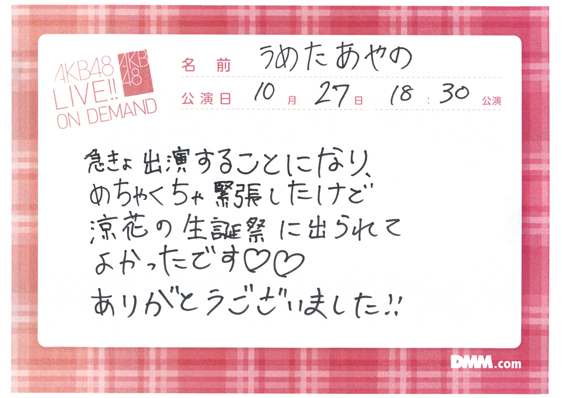 AKB48
LIVE!!
ON DEMAND
AKB
48
名前 うめたあやの
公演日 10月27日 18:30公演
急きょ出演することになり、
めちゃくちゃ緊張したけど
涼花の生誕祭に出られて
よかったです♡♡
ありがとうございました!!
DMM.com